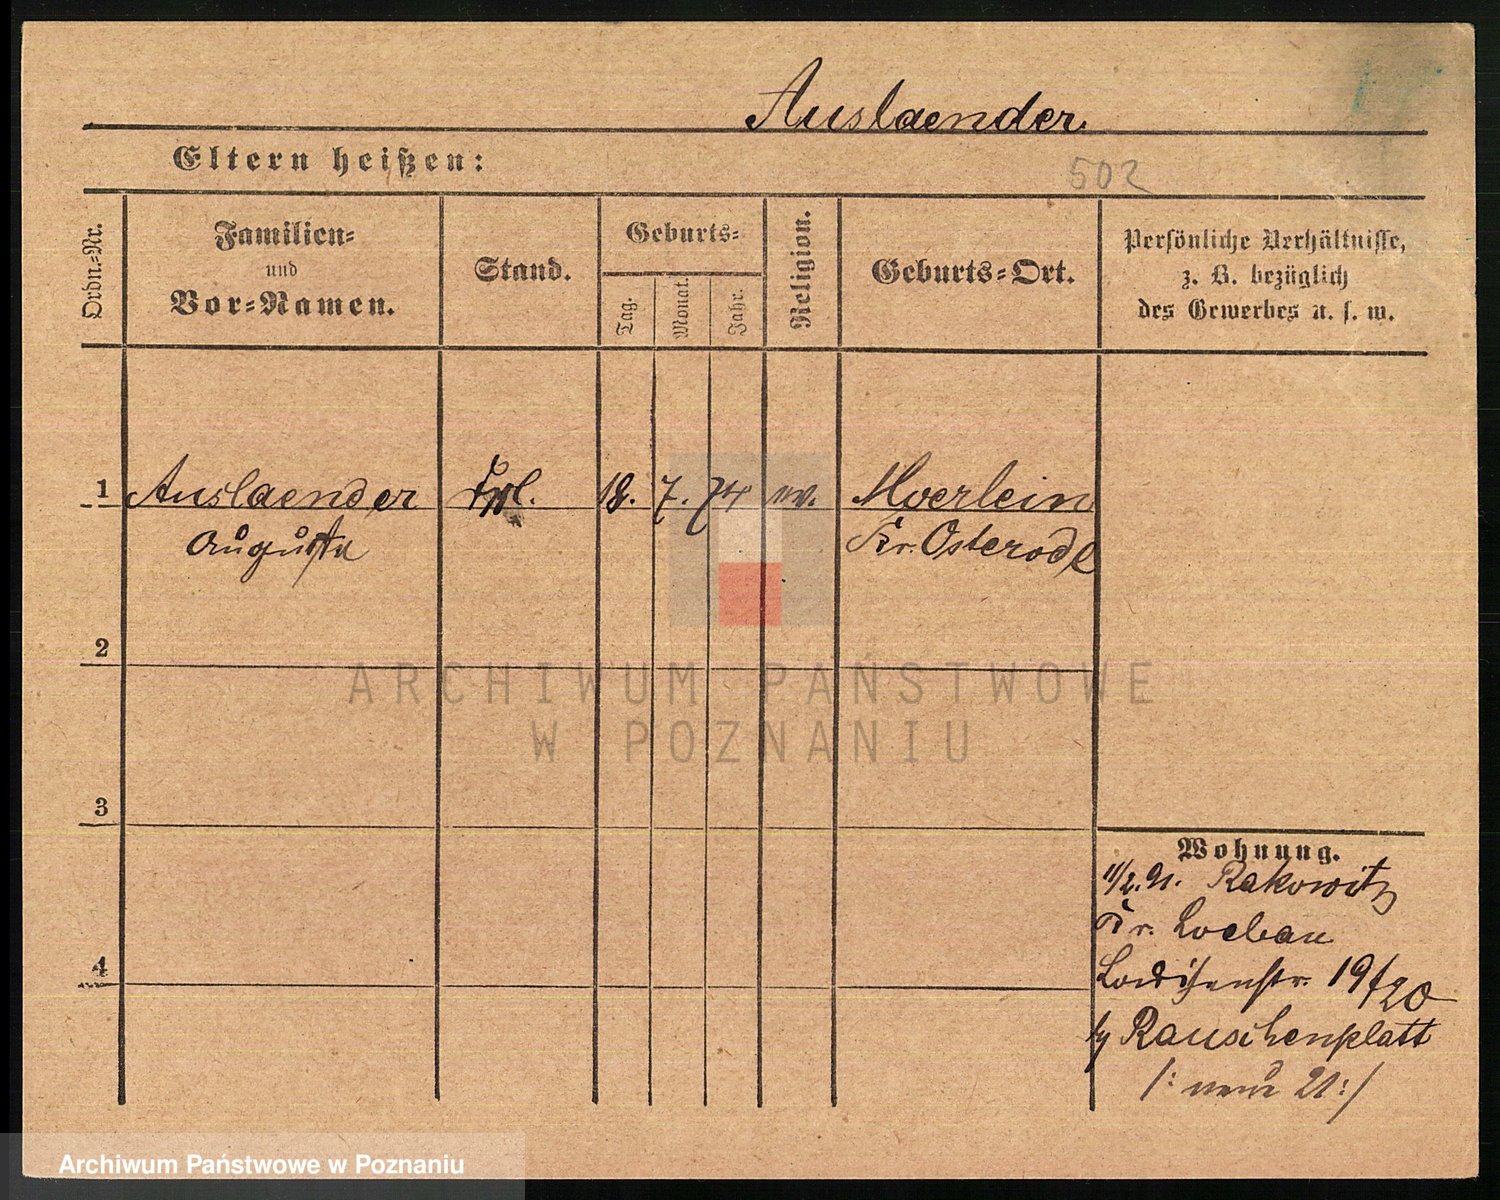 Auslaender
Eltern heißen:
502
Ordn.-Nr.
Familien-
und
Vor-Namen.
Stand.
Geburts-
Tag.
Monat.
Jahr.
Religion.
Geburts-Ort.
Persönliche Verhältnisse,
z. B. bezüglich
des Gewerbes u. s. w.
1 Auslaender Frl. 18. 7. 74 ev. Moerlein
Augusta Kr. Osterode
2
ARCHIWUM PAŃSTWOWE
W POZNANIU
3
Wohnung.
11/2. 91. Rakowitz
Kr. Loebau
4
Louisenstr. 19/20
b/ Rauschenplatt
/: neue 21 :/
Archiwum Państwowe w Poznaniu